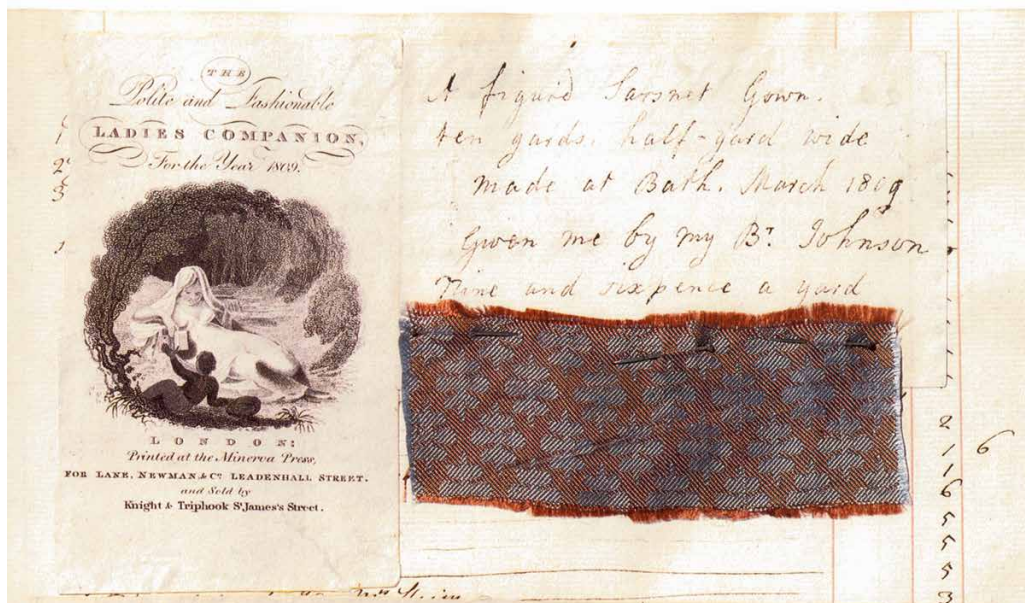 THE
Polite and Fashionable
LADIES COMPANION,
For the Year 1809.
LONDON:
Printed at the Minerva Press,
FOR LANE, NEWMAN, & Co. LEADENHALL STREET,
and Sold by
Knight & Triphook St. James's Street.
A figurd Sarsnet Gown.
ten yards, half-yard wide
made at Bath. March 1809
Given me by my Br. Johnson
Nine and sixpence a yard
2
1 6
1
6
5
5
5
3